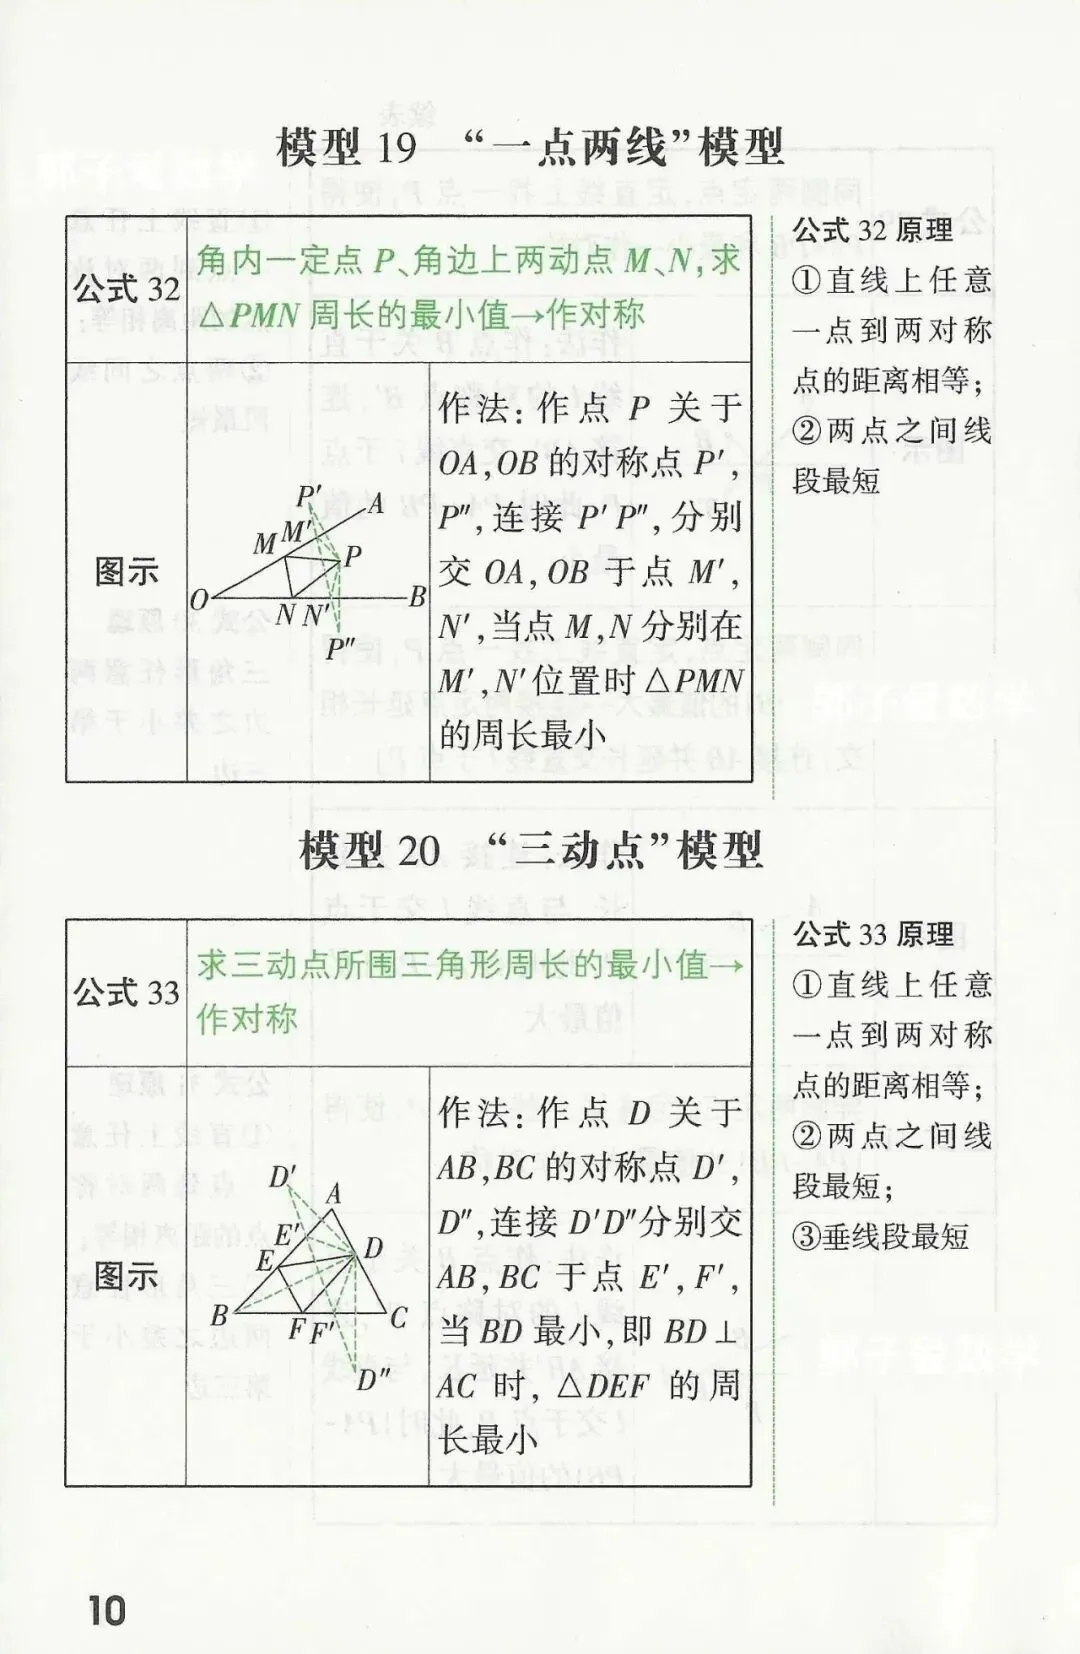 模型 19 “一点两线”模型
公式 32
角内一定点 P、角边上两动点 M、N,求
△PMN 周长的最小值→作对称
图示
P′
A
M
M′
P
O
B
N N′
P″
作法:作点 P 关于
OA,OB 的对称点 P′,
P″,连接 P′P″,分别
交 OA,OB 于点 M′,
N′,当点 M,N 分别在
M′,N′位置时△PMN
的周长最小
公式 32 原理
①直线上任意
一点到两对称
点的距离相等;
②两点之间线
段最短
模型 20 “三动点”模型
公式 33
求三动点所围三角形周长的最小值→
作对称
图示
D′
A
E′
E
D
B
F F′
C
D″
作法:作点 D 关于
AB,BC 的对称点 D′,
D″,连接 D′D″分别交
AB,BC 于点 E′,F′,
当 BD 最小,即 BD⊥
AC 时,△DEF 的周
长最小
公式 33 原理
①直线上任意
一点到两对称
点的距离相等;
②两点之间线
段最短;
③垂线段最短
10